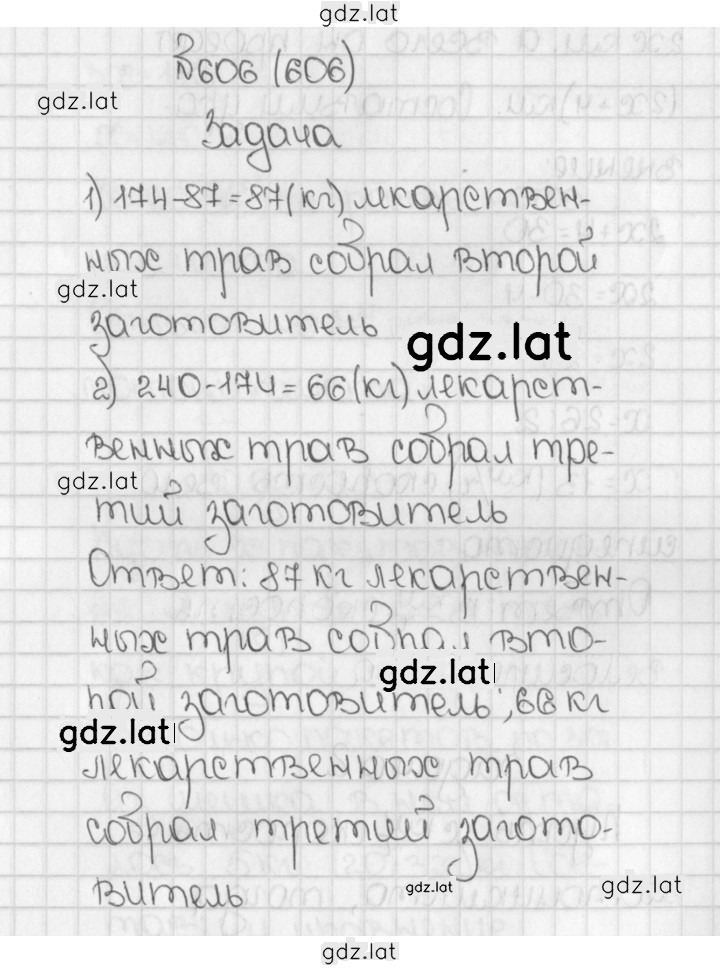 gdz.lat
№606 (606)
gdz.lat
Задача
1) 174-87=87(кг) лекарствен-
ных трав собрал второй
gdz.lat
заготовитель
gdz.lat
2) 240-174=66(кг) лекарст-
венных трав собрал тре-
gdz.lat
тий заготовитель
Ответ: 87 кг лекарствен-
ных трав собрал вто-
gdz.lat
рой заготовитель; 66 кг
gdz.lat
лекарственных трав
собрал третий загото-
витель
gdz.lat
gdz.lat
gdz.lat